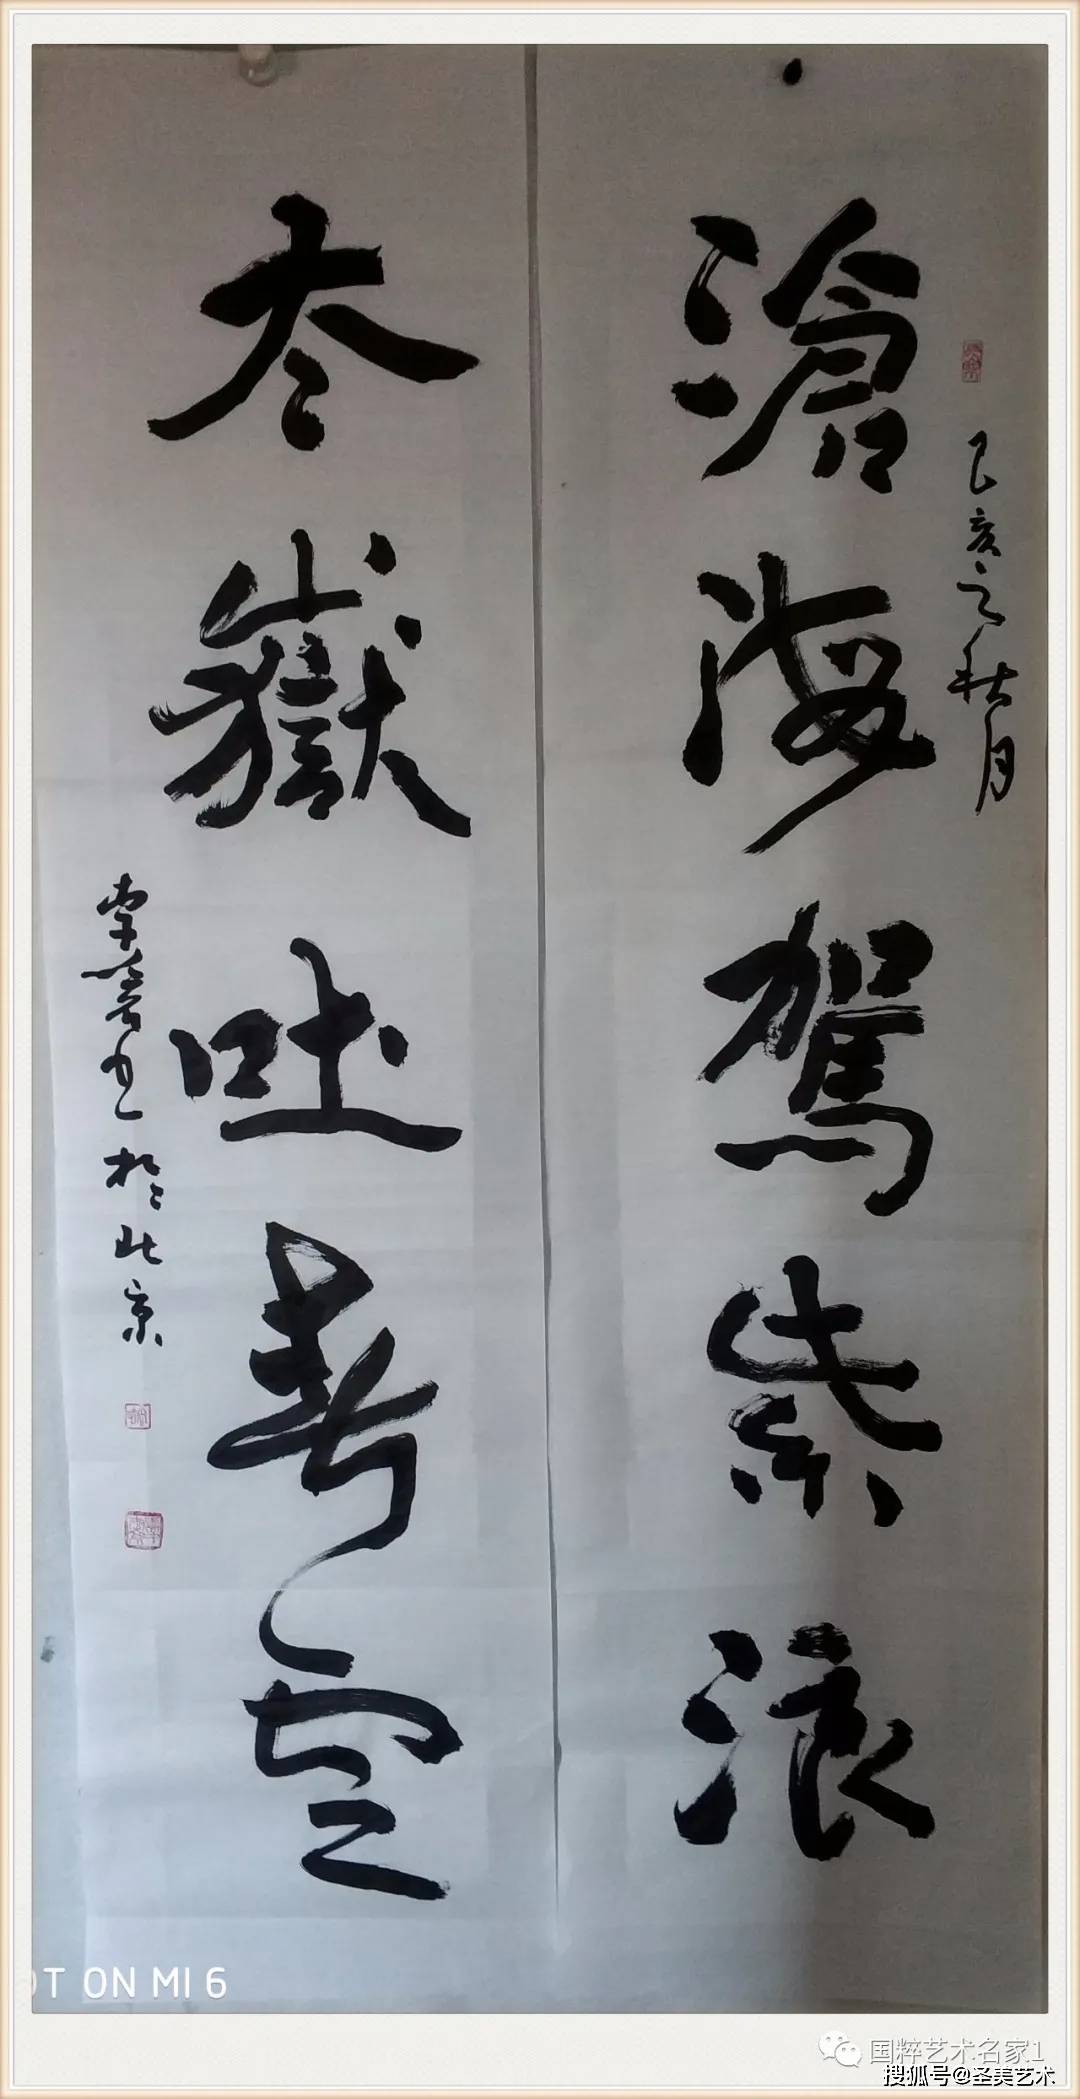 滄海駕紫浪
己亥之秋月
太嶽吐青雲
书於北京
OT ON MI 6
国粹艺术名家1
搜狐号@圣美艺术